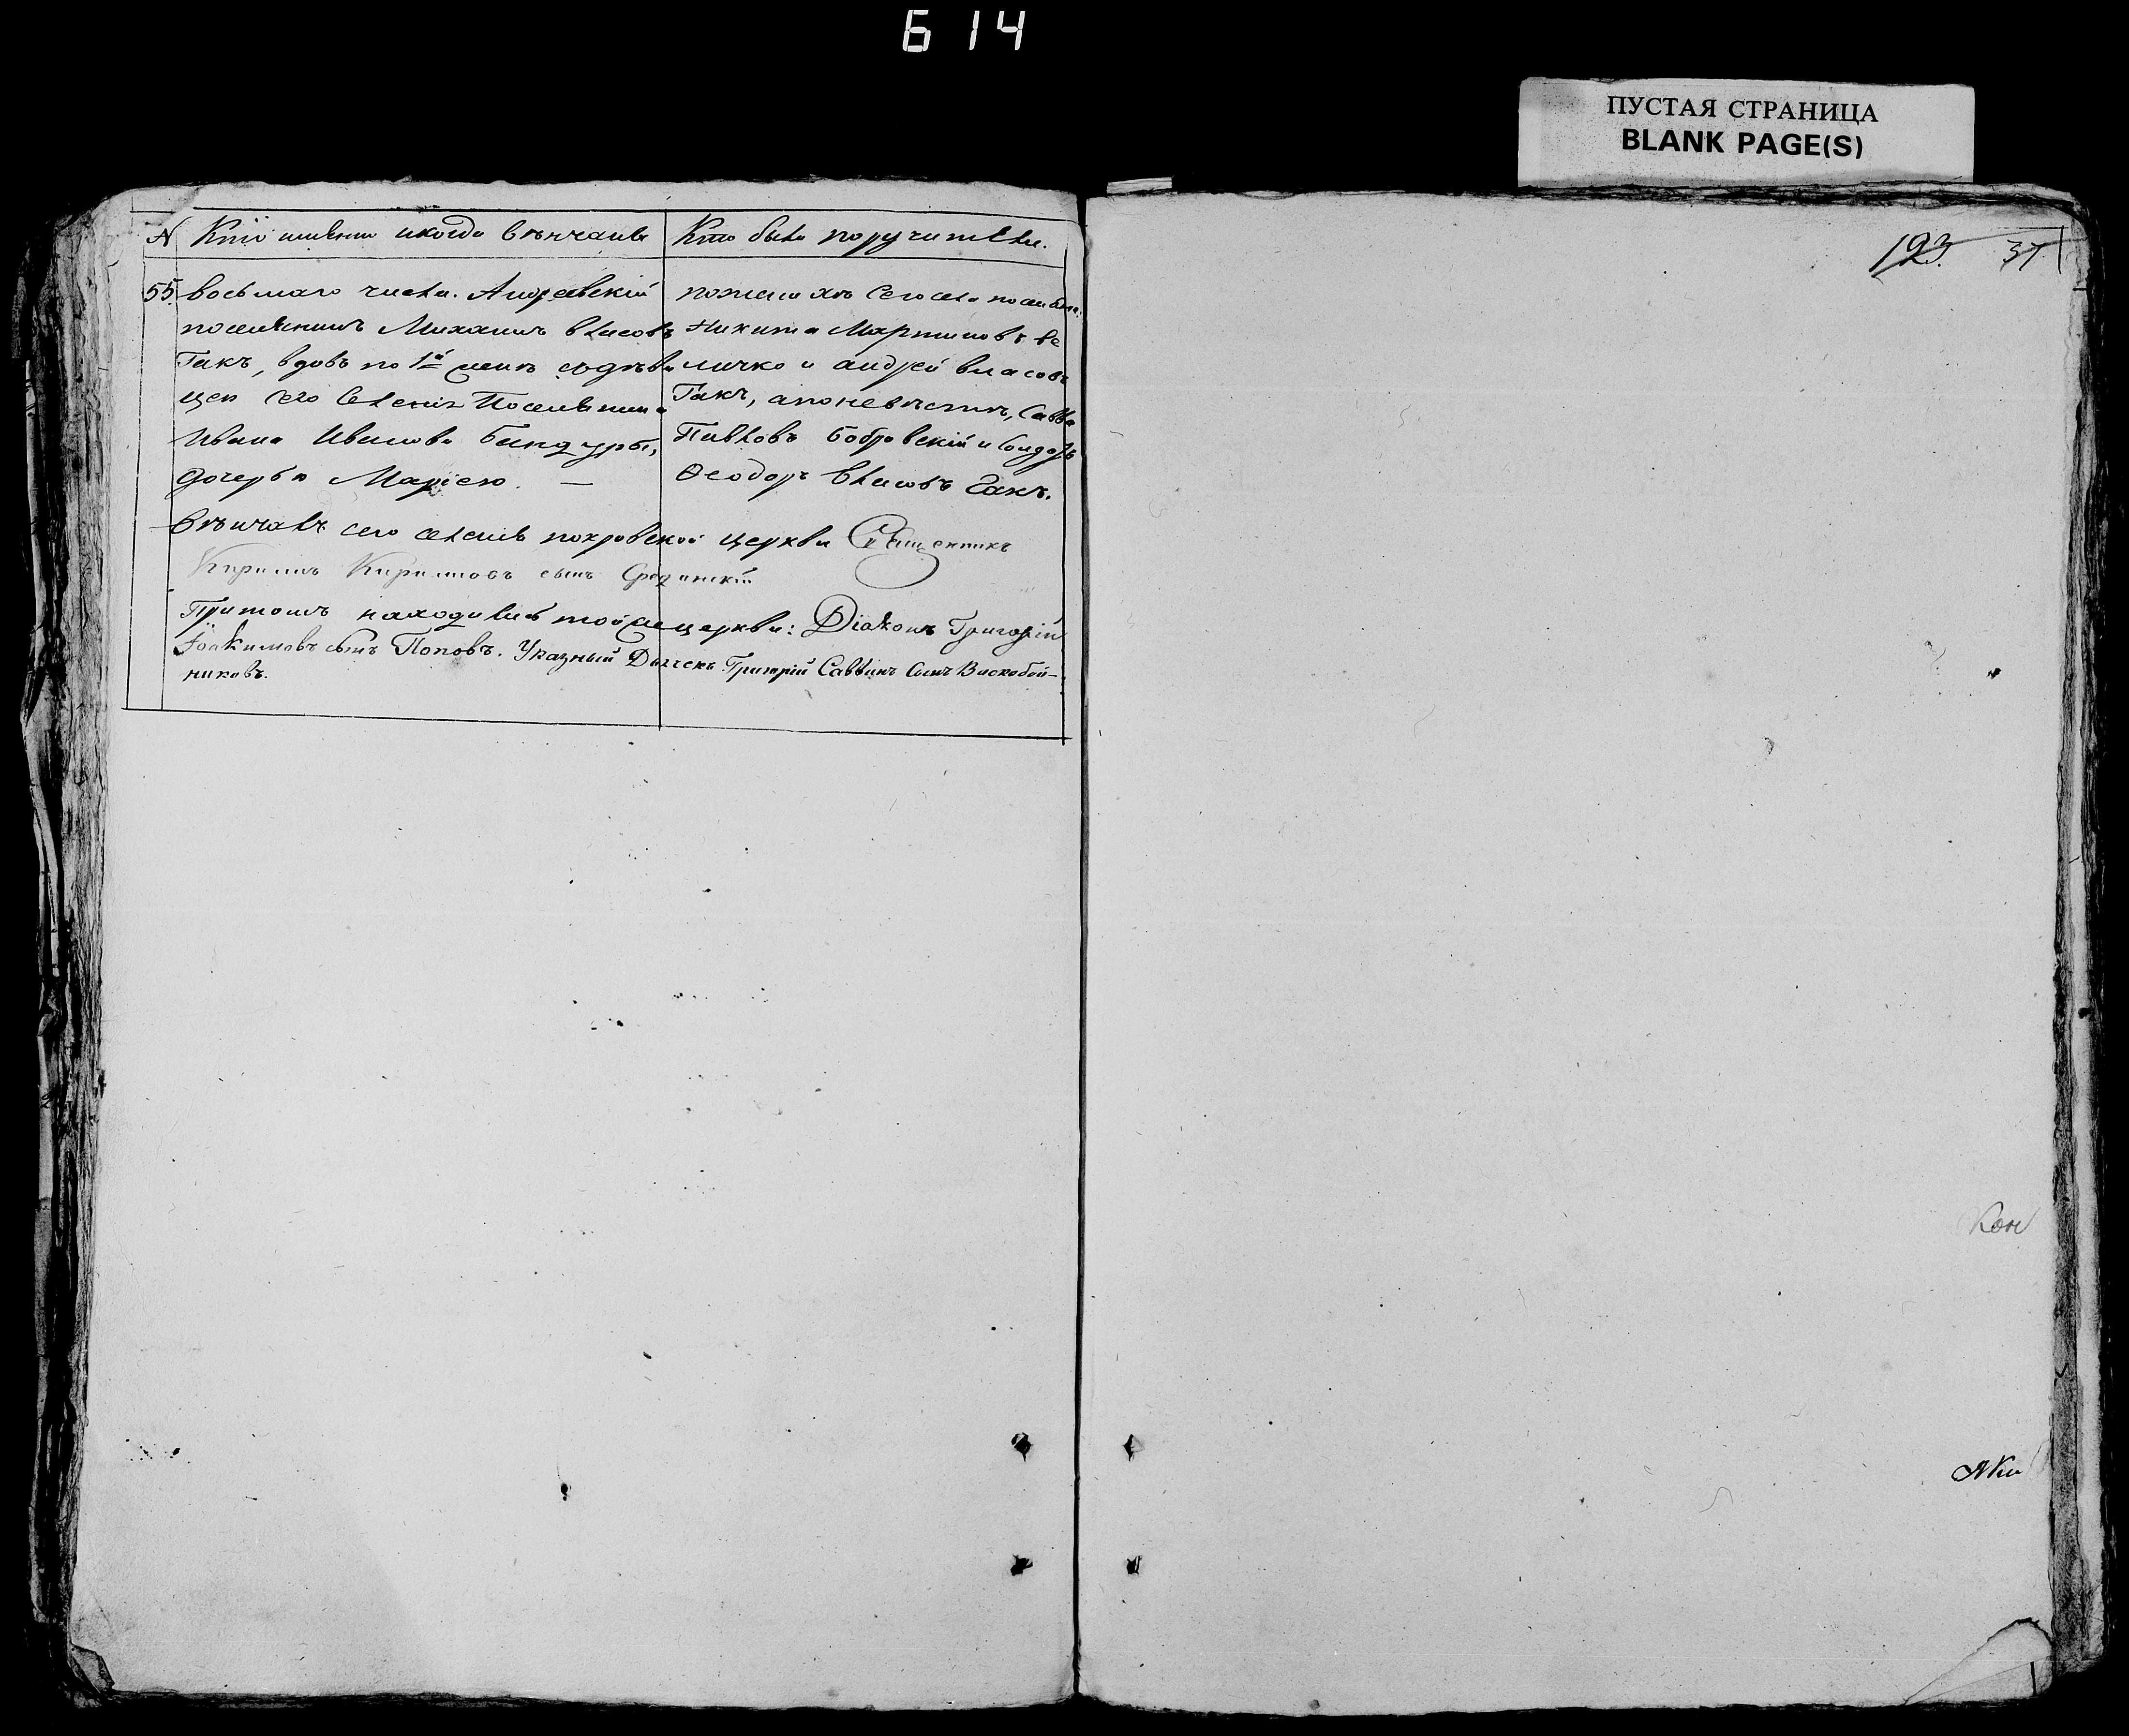 614
ПУСТАЯ СТРАНИЦА
BLANK PAGE(S)
№ Кто имянно и когда венчаны
Кто были поручители.
55. восьмаго числа. Андреевскій
поселянинъ Михаилъ Власовъ
Гакъ, вдовъ по 1й женѣ съ дѣви
цею сего Селенія Поселянина
Ивана Иванова Бандуры,
дочерью Маріею. —
по женихѣ Сего села поселяне
Никита Мартиновъ Ве
личко и андрей власовъ
Гакъ, а по невѣстѣ, Савва
Павловъ Бобровскій и Солдатъ
Ѳеодоръ Власовъ Гакъ.
Вѣнчалъ сего селенія покровской церкви Священникъ
Кирилъ Кириловъ сынъ Срединскій
Притомъ находились той же церкви: Діаконъ Григорій
Іоакимовъ сынъ Поповъ. Указный Дьячекъ Григорій Саввинъ Сынъ Воскобой-
никовъ.
193. 37
Кон